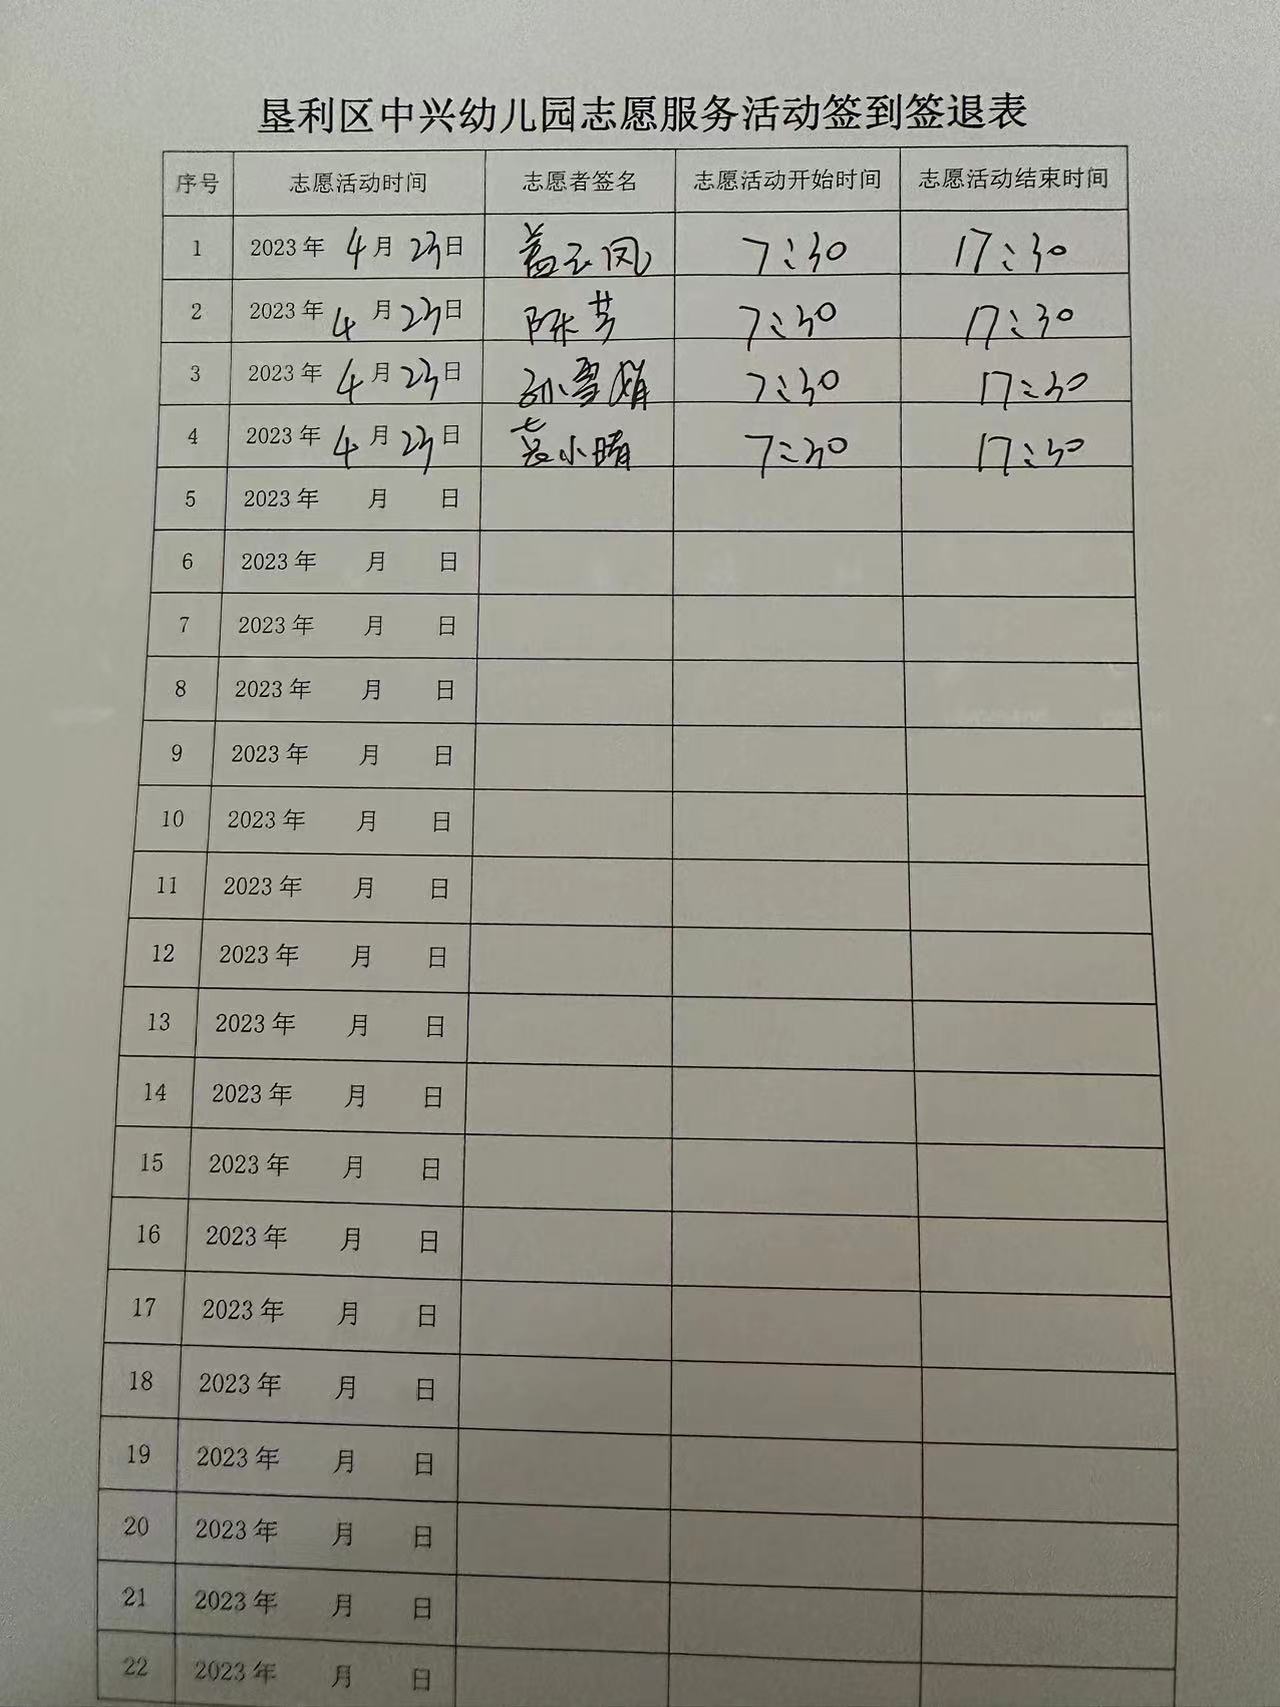 垦利区中兴幼儿园志愿服务活动签到签退表
序号 志愿活动时间 志愿者签名 志愿活动开始时间 志愿活动结束时间
1 2023年 4月 23日 盖云凤 7:30 17:30
2 2023年 4月 23日 陈芳 7:30 17:30
3 2023年 4月 23日 孙雪娟 7:30 17:30
4 2023年 4月 23日 袁小晴 7:30 17:30
5 2023年 月 日
6 2023年 月 日
7 2023年 月 日
8 2023年 月 日
9 2023年 月 日
10 2023年 月 日
11 2023年 月 日
12 2023年 月 日
13 2023年 月 日
14 2023年 月 日
15 2023年 月 日
16 2023年 月 日
17 2023年 月 日
18 2023年 月 日
19 2023年 月 日
20 2023年 月 日
21 2023年 月 日
22 2023年 月 日